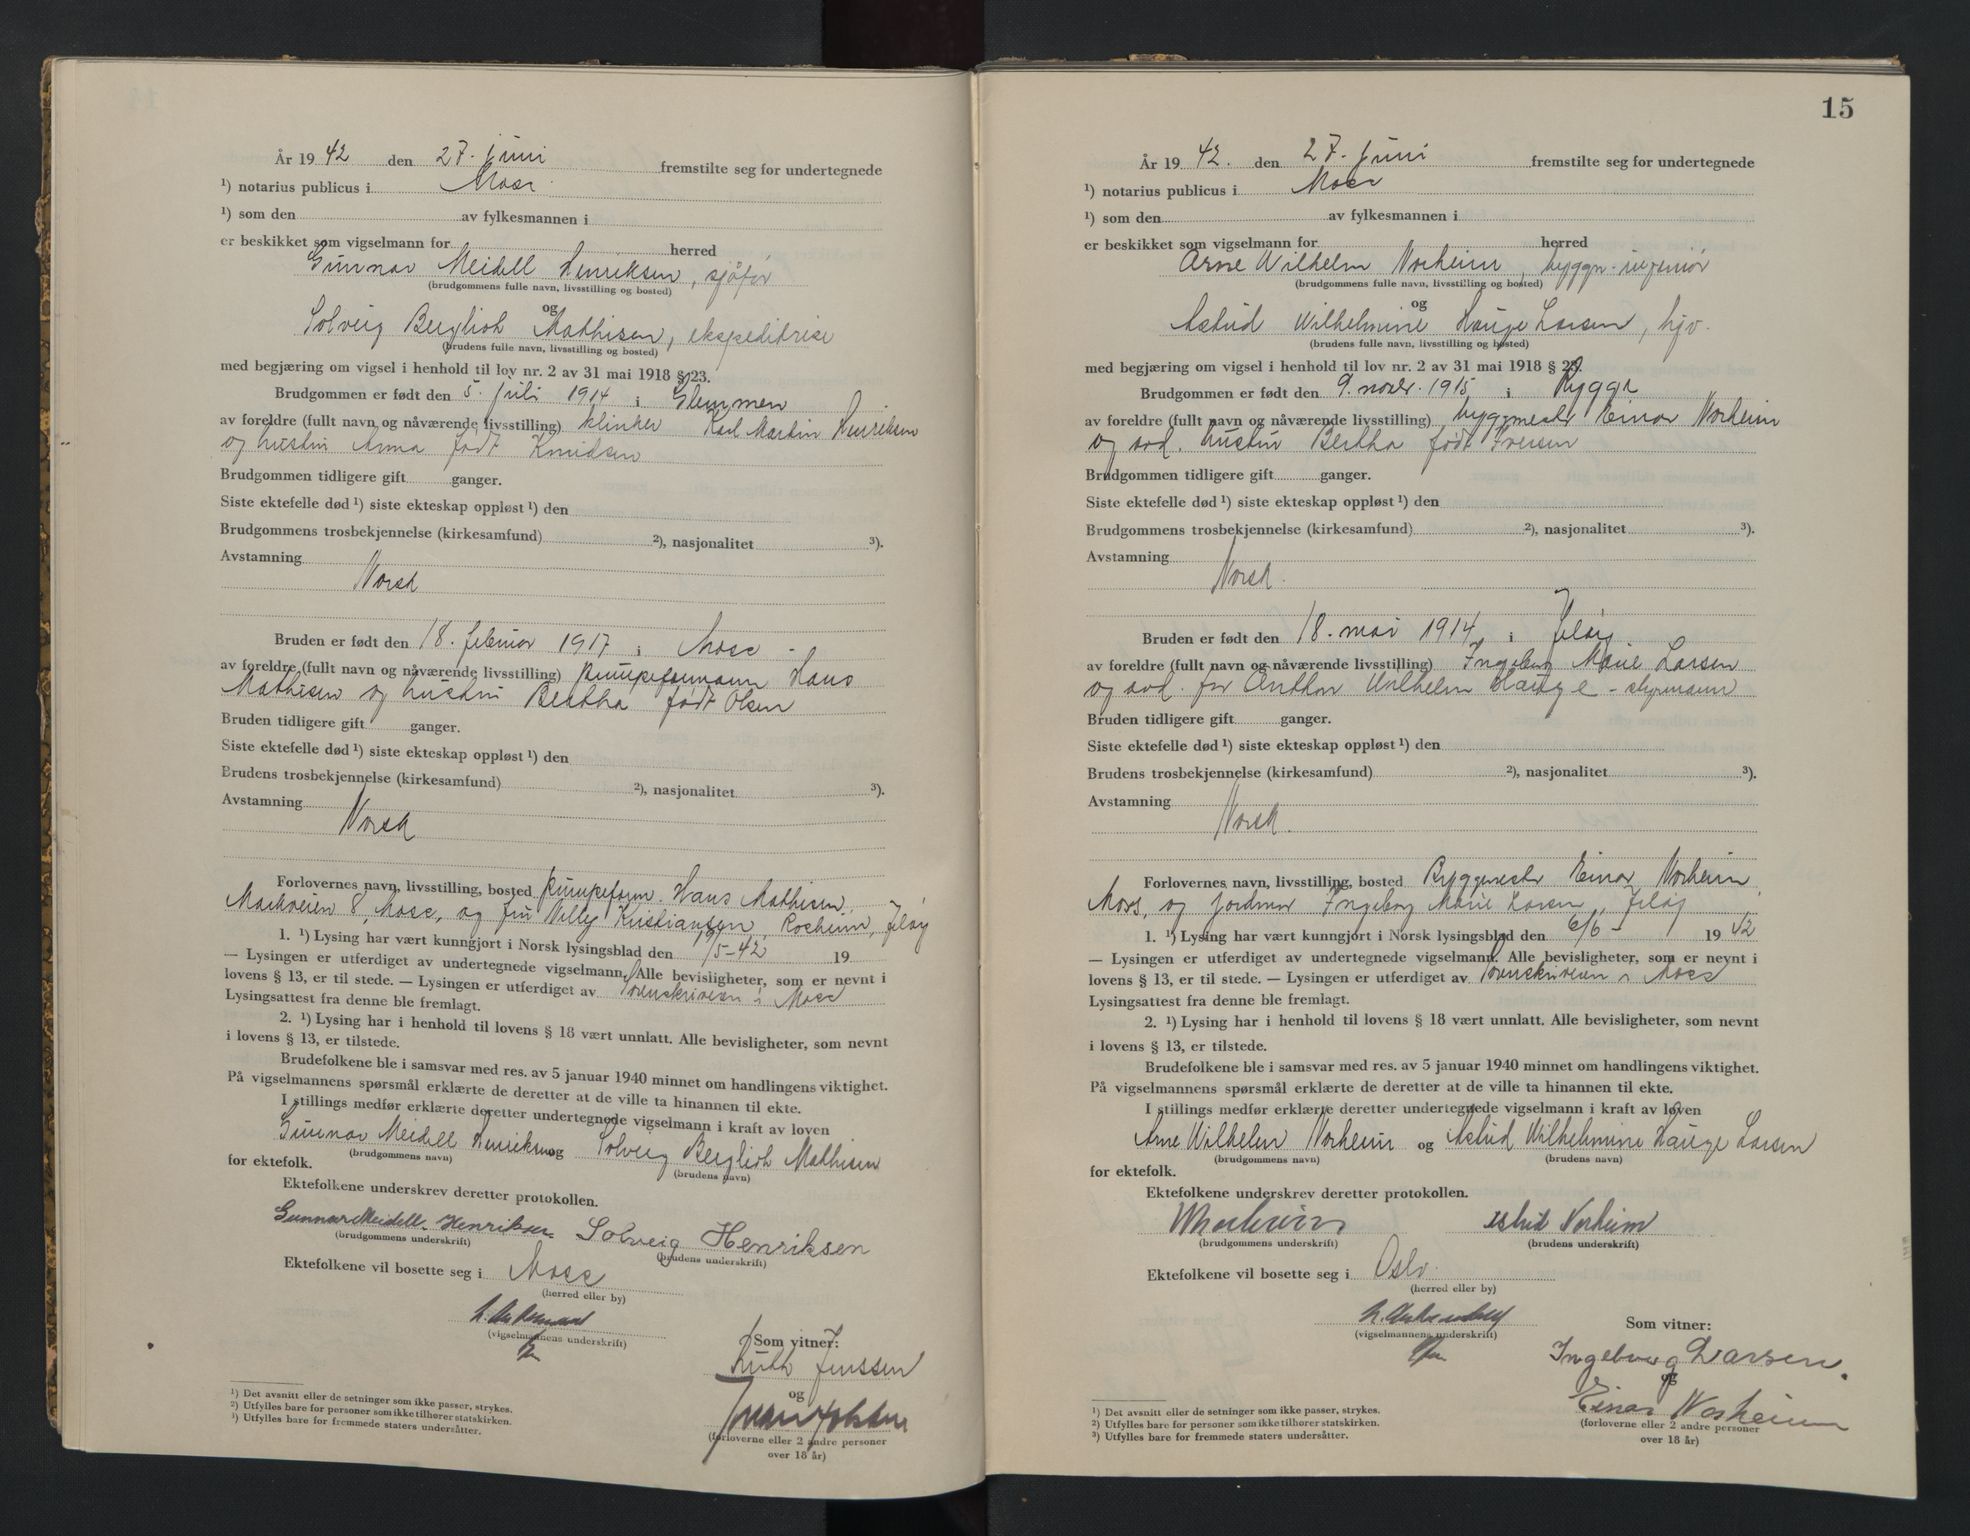 År 19 42 den 27. juni fremstilte seg for undertegnede
¹) notarius publicus i Moss.
¹) som den av fylkesmannen i
er beskikket som vigselmann for herred
Gunnar Meidell Henriksen, sjåfør
(brudgommens fulle navn, livsstilling og bosted)
og
Solveig Bergliot Mathisen, ekspeditrise
(brudens fulle navn, livsstilling og bosted)
med begjæring om vigsel i henhold til lov nr. 2 av 31 mai 1918 § 23.
Brudgommen er født den 5. juli 1914 i Glemmen
av foreldre (fullt navn og nåværende livsstilling) klinker Karl Martin Henriksen
og hustru Anna født Knudsen
Brudgommen tidligere gift ganger.
Siste ektefelle død ¹) siste ekteskap oppløst ¹) den
Brudgommens trosbekjennelse (kirkesamfund) ²), nasjonalitet ³).
Avstamning
Norsk
Bruden er født den 18. februar 1917 i Moss -
av foreldre (fullt navn og nåværende livsstilling) pumpeformann Hans
Mathisen og hustru Bertha født Olsen
Bruden tidligere gift ganger.
Siste ektefelle død ¹) siste ekteskap oppløst ¹) den
Brudens trosbekjennelse (kirkesamfund) ²), nasjonalitet ³).
Avstamning
Norsk
Forlovernes navn, livsstilling, bosted pumpeform. Hans Mathisen,
Markveien 8, Moss, og fru Willy Kristiansen, Rosheim, Jeløy
1. ¹) Lysing har vært kunngjort i Norsk lysingsblad den 19/5-42 19
— Lysingen er utferdiget av undertegnede vigselmann. Alle bevisligheter, som er nevnt i
lovens § 13, er til stede. — Lysingen er utferdiget av Sorenskriveren i Moss
Lysingsattest fra denne ble fremlagt.
2. ¹) Lysing har i henhold til lovens § 18 vært unnlatt. Alle bevisligheter, som nevnt
i lovens § 13, er tilstede.
Brudefolkene ble i samsvar med res. av 5 januar 1940 minnet om handlingens viktighet.
På vigselmannens spørsmål erklærte de deretter at de ville ta hinannen til ekte.
I stillings medfør erklærte deretter undertegnede vigselmann i kraft av loven
Gunnar Meidell Henriksen og Solveig Bergliot Mathisen
(brudgommens navn) (brudens navn)
for ektefolk.
Ektefolkene underskrev deretter protokollen.
Gunnar Meidell Henriksen Solveig Henriksen
(brudgommens underskrift) (brudens underskrift)
Ektefolkene vil bosette seg i Moss
(herred eller by)
(vigselmannens underskrift)
Som vitner:
Ruth Jenssen
og
(forloverne eller 2 andre personer
over 18 år)
¹) Det avsnitt eller de setninger som ikke passer, strykes.
²) Utfylles bare for personer som ikke tilhører statskirken.
³) Utfylles bare for fremmede staters undersåtter.
15
År 19 42. den 27. juni fremstilte seg for undertegnede
¹) notarius publicus i Moss
¹) som den av fylkesmannen i
er beskikket som vigselmann for herred
Arne Wilhelm Norheim, byggn.ingeniør
(brudgommens fulle navn, livsstilling og bosted)
og
Astrid Wilhelmine Hauge Larsen, hjv.
(brudens fulle navn, livsstilling og bosted)
med begjæring om vigsel i henhold til lov nr. 2 av 31 mai 1918 § 23.
Brudgommen er født den 9. novbr. 1915 i Rygge
av foreldre (fullt navn og nåværende livsstilling) byggmester Einar Norheim
og avd. hustru Bertha født Iversen
Brudgommen tidligere gift ganger.
Siste ektefelle død ¹) siste ekteskap oppløst ¹) den
Brudgommens trosbekjennelse (kirkesamfund) ²), nasjonalitet ³).
Avstamning
Norsk.
Bruden er født den 18. mai 1914 i Jeløy.
av foreldre (fullt navn og nåværende livsstilling) Ingeborg Marie Larsen
og avd. far Anthon Wilhelm Hauge - styrmann
Bruden tidligere gift ganger.
Siste ektefelle død ¹) siste ekteskap oppløst ¹) den
Brudens trosbekjennelse (kirkesamfund) ²), nasjonalitet ³).
Avstamning
Norsk.
Forlovernes navn, livsstilling, bosted Byggmester Einar Norheim,
Moss, og jordmor Ingeborg Marie Larsen, Jeløy
1. ¹) Lysing har vært kunngjort i Norsk lysingsblad den 6/6 - 19 42
— Lysingen er utferdiget av undertegnede vigselmann. Alle bevisligheter, som er nevnt i
lovens § 13, er til stede. — Lysingen er utferdiget av Sorenskriveren i Moss
Lysingsattest fra denne ble fremlagt.
2. ¹) Lysing har i henhold til lovens § 18 vært unnlatt. Alle bevisligheter, som nevnt
i lovens § 13, er tilstede.
Brudefolkene ble i samsvar med res. av 5 januar 1940 minnet om handlingens viktighet.
På vigselmannens spørsmål erklærte de deretter at de ville ta hinannen til ekte.
I stillings medfør erklærte deretter undertegnede vigselmann i kraft av loven
Arne Wilhelm Norheim og Astrid Wilhelmine Hauge Larsen
(brudgommens navn) (brudens navn)
for ektefolk.
Ektefolkene underskrev deretter protokollen.
Norheim Astrid Norheim
(brudgommens underskrift) (brudens underskrift)
Ektefolkene vil bosette seg i Oslo.
(herred eller by)
(vigselmannens underskrift)
Som vitner:
Ingeborg Larsen.
og
Einar Norheim
(forloverne eller 2 andre personer
over 18 år)
¹) Det avsnitt eller de setninger som ikke passer, strykes.
²) Utfylles bare for personer som ikke tilhører statskirken.
³) Utfylles bare for fremmede staters undersåtter.